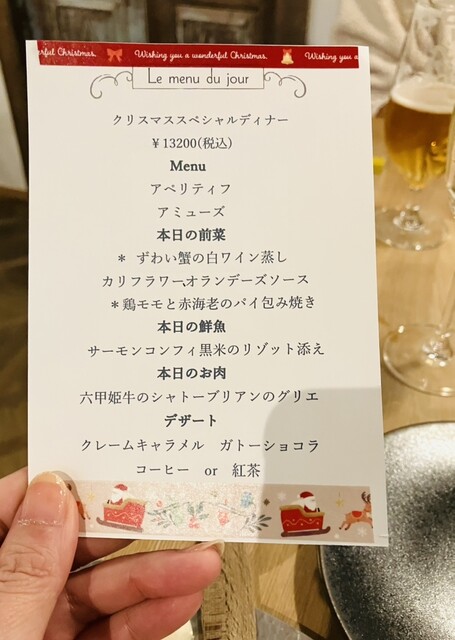 rful Christmas. Wishing you a wonderful Christmas. Wishing you a
Le menu du jour
クリスマススペシャルディナー
¥13200(税込)
Menu
アペリティフ
アミューズ
本日の前菜
* ずわい蟹の白ワイン蒸し
カリフラワー,オランデーズソース
*鶏モモと赤海老のパイ包み焼き
本日の鮮魚
サーモンコンフィ黒米のリゾット添え
本日のお肉
六甲姫牛のシャトーブリアンのグリエ
デザート
クレームキャラメル ガトーショコラ
コーヒー or 紅茶